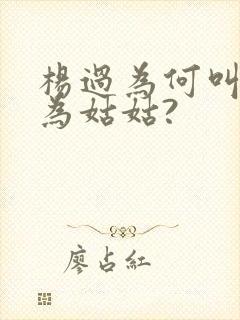 楊過為何叫
為姑姑?
廖占紅